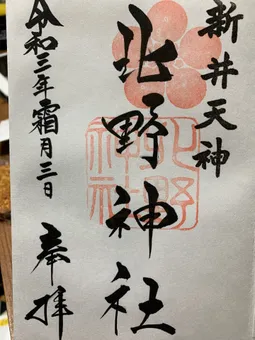 新井天神
北野神社
奉拝
令和三年霜月三日
北野神社